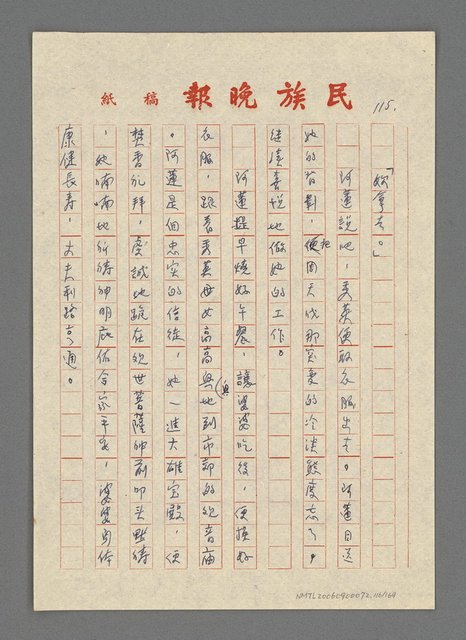 民族晚報 稿紙
115.
「妳拿去。」
阿蓮說吧，秀英便取衣服出去。阿蓮目送
她的背影，便把周天成那突變的冷淡態度忘了，
继续喜悅地做她的工作。
阿蓮提早燒好午餐，讓婆婆吃後，便換好
衣服，跟着秀英母女高高興興地到市郊的觀音庙
。阿蓮是個忠实的信徒，她一進大雄宝殿，便
焚香礼拜，虔誠地跪在观世音菩薩神前叩头默祷
，她喃喃地祈祷神明庇佑合家平安，婆婆身体
康健長寿，丈夫利路亨通。
NMTL20060900072, 116/164